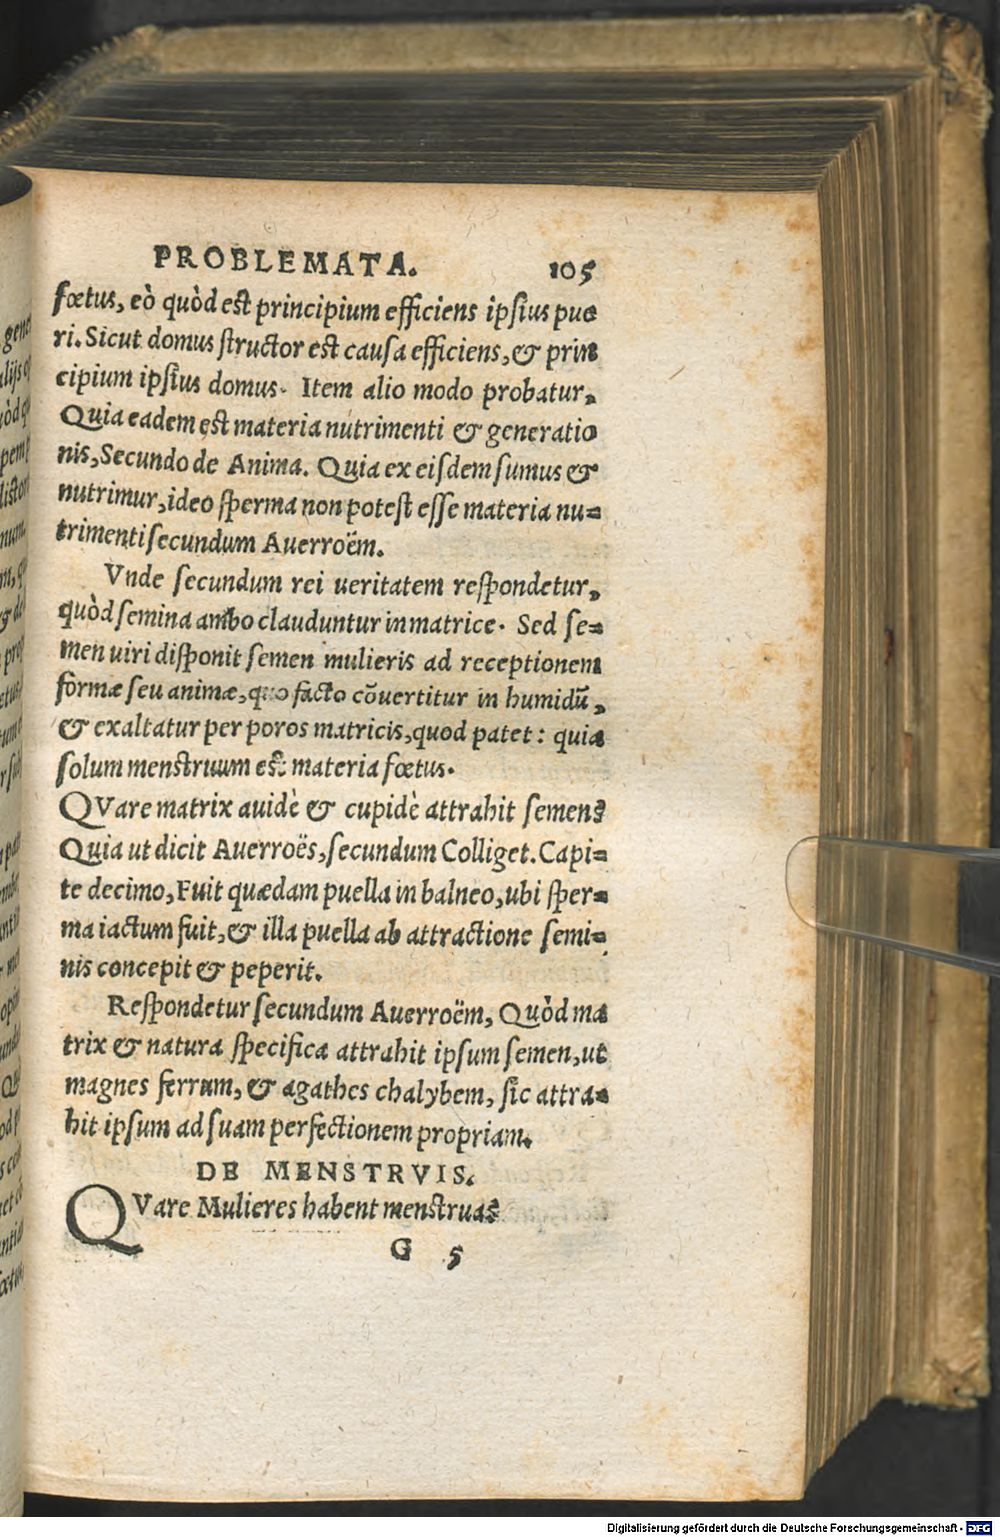 PROBLEMATA. 105
fœtus, eò quòd est principium efficiens ipsius pue
ri. Sicut domus structor est causa efficiens, & prin
cipium ipsius domus. Item alio modo probatur,
Quia eadem est materia nutrimenti & generatio
nis, Secundo de Anima. Quia ex eisdem sumus &
nutrimur, ideo sperma non potest esse materia nu=
trimenti secundum Auerroëm.
Vnde secundum rei ueritatem respondetur,
quòd semina ambo clauduntur in matrice. Sed se=
men uiri disponit semen mulieris ad receptionem
formæ seu animæ, quo facto cõuertitur in humidũ,
& exaltatur per poros matricis, quod patet: quia
solum menstruum est materia fœtus.
QVare matrix auidè & cupidè attrahit semen?
Quia ut dicit Auerroës, secundum Colliget. Capi=
te decimo, Fuit quædam puella in balneo, ubi sper=
ma iactum fuit, & illa puella ab attractione semi=
nis concepit & peperit.
Respondetur secundum Auerroëm, Quòd ma
trix & natura specifica attrahit ipsum semen, ut
magnes ferrum, & agathes chalybem, sic attra=
hit ipsum ad suam perfectionem propriam.
DE MENSTRVIS.
QVare Mulieres habent menstrua?
G 5
Digitalisierung gefördert durch die Deutsche Forschungsgemeinschaft - DFG